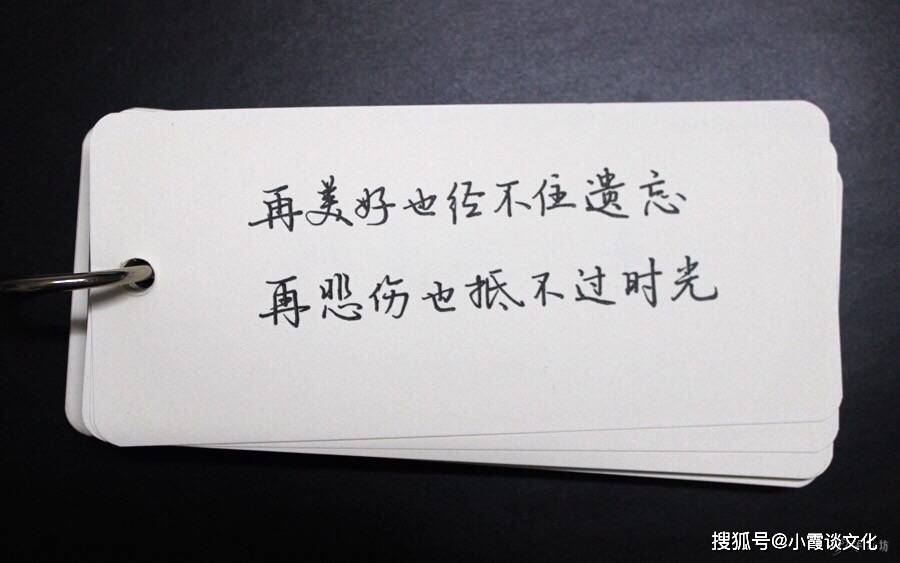 再美好也经不住遗忘
再悲伤也抵不过时光
搜狐号@小霞谈文化